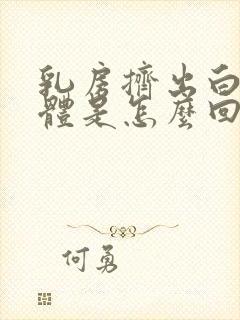 乳房擠出白
體是怎麼回
何勇